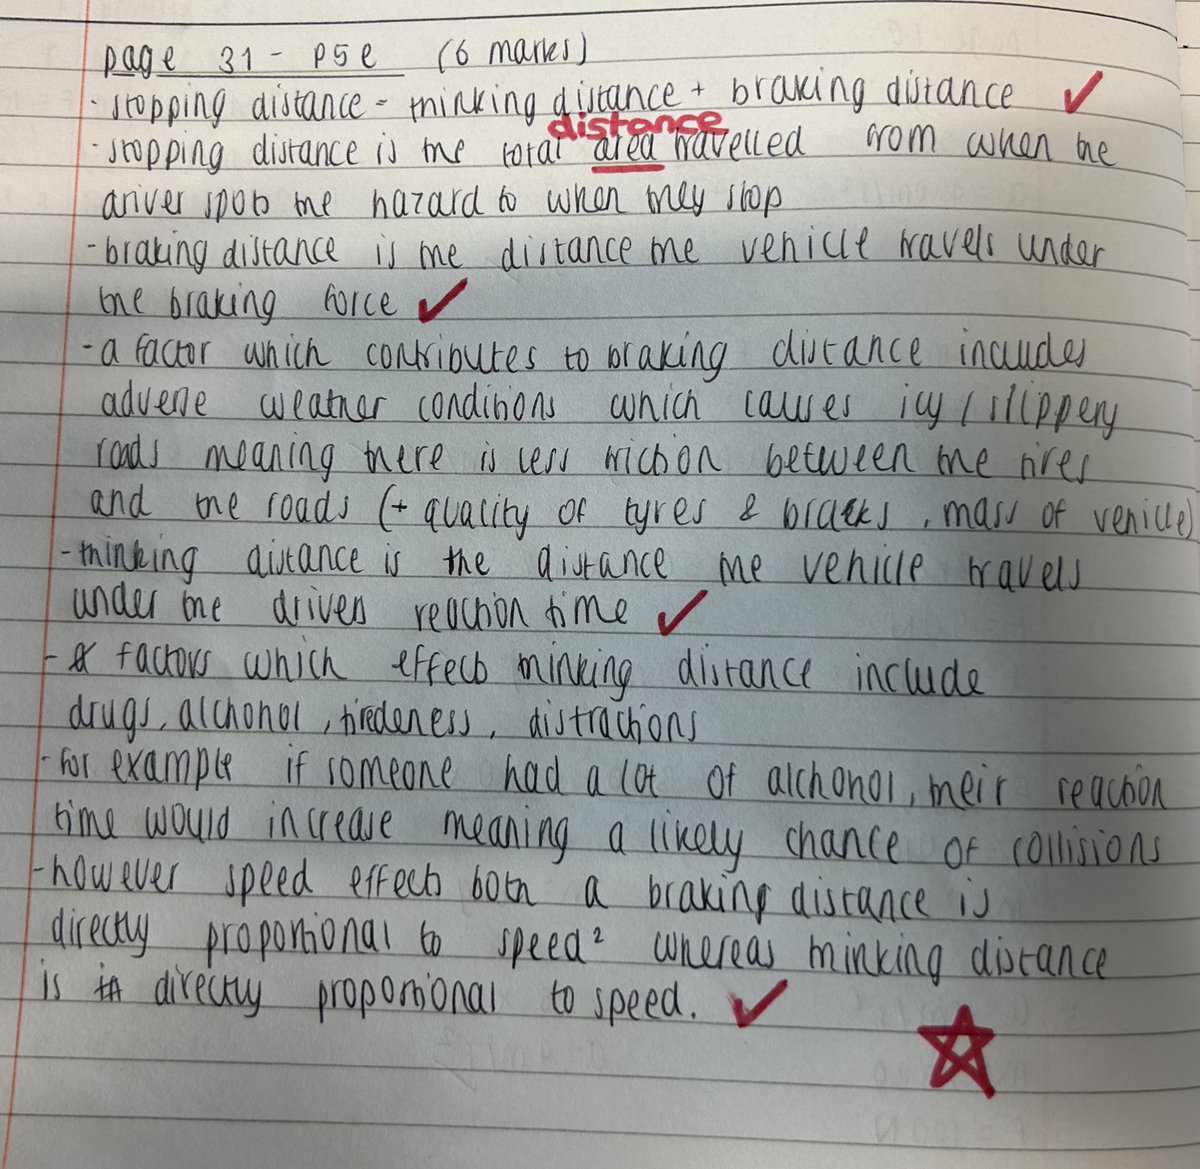 page 31 - P5e (6 marks)
· stopping distance = thinking distance + braking distance
distance
· stopping distance is the total area travelled from when the
driver spots the hazard to when they stop
- braking distance is the distance the vehicle travels under
the braking force
- a factor which contributes to braking distance includes
adverse weather conditions which causes icy / slippery
roads meaning there is less friction between the tires
and the roads (+ quality of tyres & , mass of vehicle)
- thinking distance is the distance the vehicle travels
under the drivers reaction time
- factors which effects thinking distance include
drugs, alchohol, tiredeness, distractions
- for example if someone had a lot of alchohol, their reaction
time would increase meaning a likely chance of collisions
- however speed effects both a braking distance is
directly proportional to speed² whereas thinking distance
is directly proportional to speed.